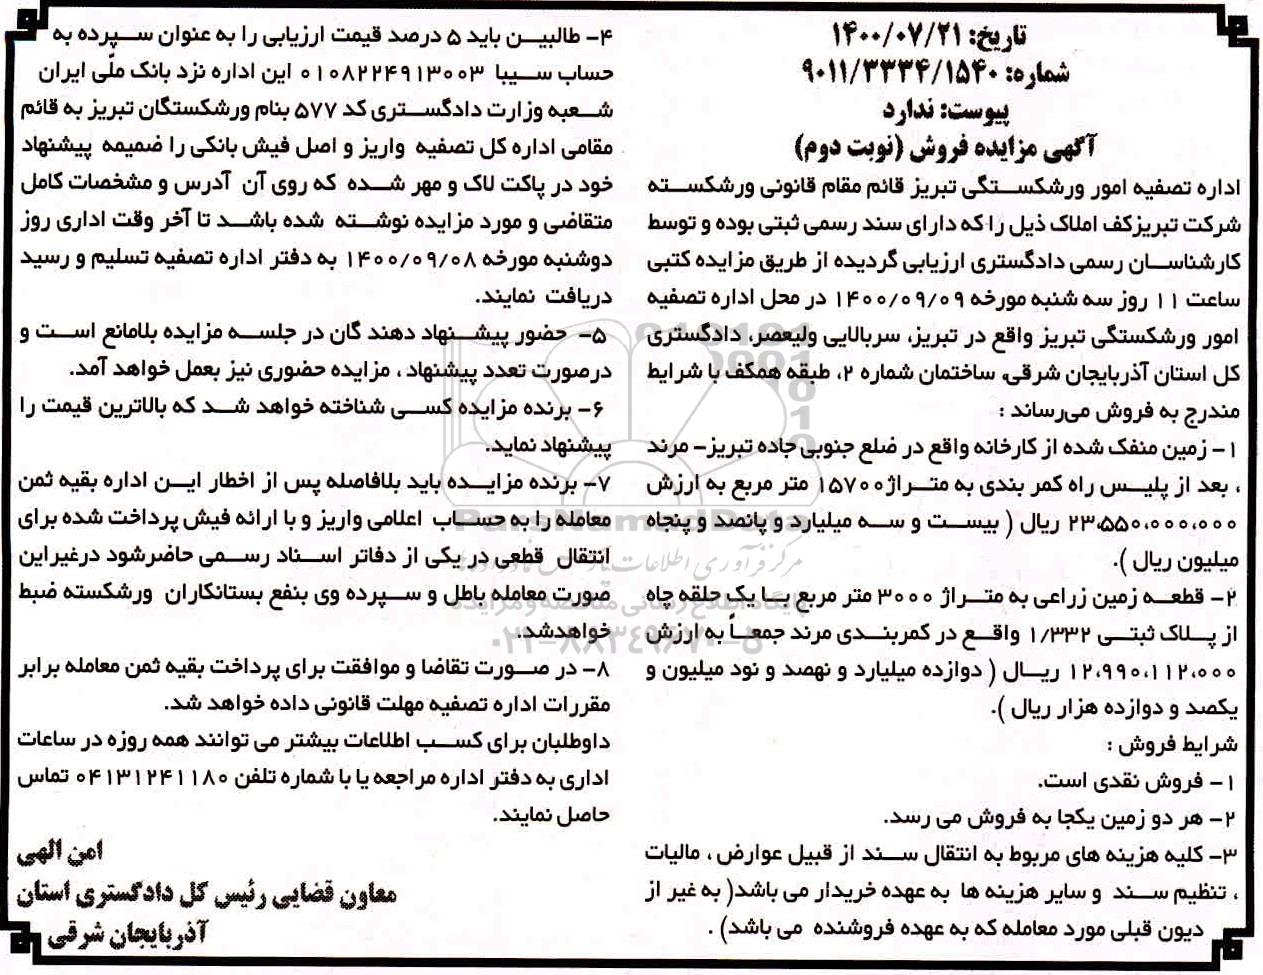 تاریخ: ۱۴۰۰/۰۷/۲۱
شماره: ۹۰۱۱/۳۳۳۴/۱۵۴۰
پیوست: ندارد
آگهی مزایده فروش (نوبت دوم)
اداره تصفیه امور ورشکستگی تبریز قائم مقام قانونی ورشکسته
شرکت تبریزکف املاک ذیل را که دارای سند رسمی ثبتی بوده و توسط
کارشناسان رسمی دادگستری ارزیابی گردیده از طریق مزایده کتبی
ساعت ۱۱ روز سه شنبه مورخه ۱۴۰۰/۰۹/۰۹ در محل اداره تصفیه
امور ورشکستگی تبریز واقع در تبریز، سربالایی ولیعصر، دادگستری
کل استان آذربایجان شرقی، ساختمان شماره ۲، طبقه همکف با شرایط
مندرج به فروش می‌رساند :
۱- زمین منفک شده از کارخانه واقع در ضلع جنوبی جاده تبریز- مرند
، بعد از پلیس راه کمر بندی به متراژ ۱۵۷۰۰ متر مربع به ارزش
۲۳،۵۵۰،۰۰۰،۰۰۰ ریال ( بیست و سه میلیارد و پانصد و پنجاه
میلیون ریال ).
۲- قطعه زمین زراعی به متراژ ۳۰۰۰ متر مربع با یک حلقه چاه
از پلاک ثبتی ۱/۳۳۲ واقع در کمربندی مرند جمعاً به ارزش
۱۲،۹۹۰،۱۱۲،۰۰۰ ریال ( دوازده میلیارد و نهصد و نود میلیون و
یکصد و دوازده هزار ریال ).
شرایط فروش :
۱- فروش نقدی است.
۲- هر دو زمین یکجا به فروش می رسد.
۳- کلیه هزینه های مربوط به انتقال سند از قبیل عوارض ، مالیات
، تنظیم سند و سایر هزینه ها به عهده خریدار می باشد( به غیر از
دیون قبلی مورد معامله که به عهده فروشنده می باشد) .
۴- طالبین باید ۵ درصد قیمت ارزیابی را به عنوان سپرده به
حساب سیبا ۰۱۰۸۲۲۴۹۱۳۰۰۳ این اداره نزد بانک ملّی ایران
شعبه وزارت دادگستری کد ۵۷۷ بنام ورشکستگان تبریز به قائم
مقامی اداره کل تصفیه واریز و اصل فیش بانکی را ضمیمه پیشنهاد
خود در پاکت لاک و مهر شده که روی آن آدرس و مشخصات کامل
متقاضی و مورد مزایده نوشته شده باشد تا آخر وقت اداری روز
دوشنبه مورخه ۱۴۰۰/۰۹/۰۸ به دفتر اداره تصفیه تسلیم و رسید
دریافت نمایند.
۵- حضور پیشنهاد دهند گان در جلسه مزایده بلامانع است و
درصورت تعدد پیشنهاد ، مزایده حضوری نیز بعمل خواهد آمد.
۶- برنده مزایده کسی شناخته خواهد شد که بالاترین قیمت را
پیشنهاد نماید.
۷- برنده مزایده باید بلافاصله پس از اخطار این اداره بقیه ثمن
معامله را به حساب اعلامی واریز و با ارائه فیش پرداخت شده برای
انتقال قطعی در یکی از دفاتر اسناد رسمی حاضرشود درغیراین
صورت معامله باطل و سپرده وی بنفع بستانکاران ورشکسته ضبط
خواهدشد.
۸- در صورت تقاضا و موافقت برای پرداخت بقیه ثمن معامله برابر
مقررات اداره تصفیه مهلت قانونی داده خواهد شد.
داوطلبان برای کسب اطلاعات بیشتر می توانند همه روزه در ساعات
اداری به دفتر اداره مراجعه یا با شماره تلفن ۰۴۱۳۱۲۴۱۱۸۰ تماس
حاصل نمایند.
امن الهی
معاون قضایی رئیس کل دادگستری استان
آذربایجان شرقی
ParsNamadData
مرکز فرآوری اطلاعات پارس نماد داده ها
پایگاه اطلاع رسانی مناقصه و مزایده
۰۲۱-۸۸۳۴۹۶۷۰-۵